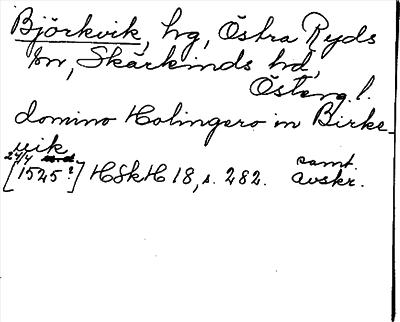 Björkvik, hg, Östra Ryds
sn, Skärkinds hd,
Österg. l.
domino Holingero in Birke-
vik
24/4
[1525?] HSkH 18, s. 282. samt.
avskr.